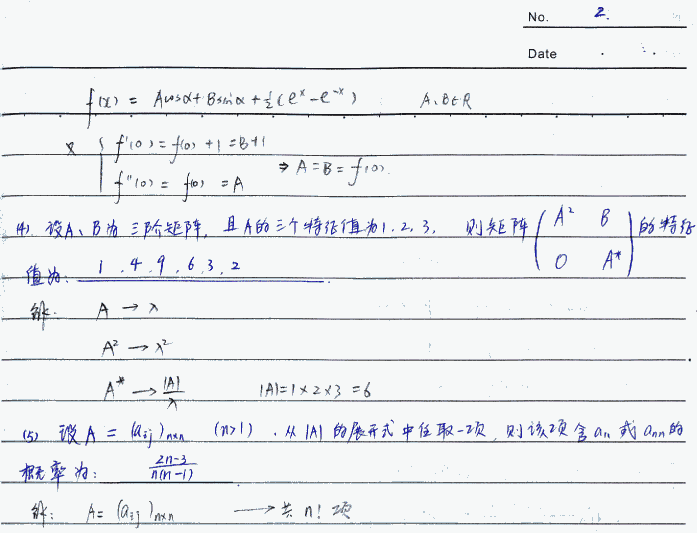 No. 2.
Date
f(x) = Acosα + Bsinα + ½(e^x - e^-x) A、B∈R
又 { f'(0) = f(0) + 1 = B+1
f''(0) = f(0) = A
⇒ A = B = f(0).
(4) 设A、B为三阶矩阵, 且A的三个特征值为1.2.3, 则矩阵 ( A² B ; O A* ) 的特征
值为: 1 . 4 . 9 . 6 . 3 . 2
解: A → λ
A² → λ²
A* → |A|/λ |A| = 1×2×3 = 6
(5) 设A = (a_ij)_n×n (n>1) . 从|A|的展开式中任取一项, 则该项含a₁₁或a_nn的
概率为: (2n-3)/(n(n-1))
解: A = (a_ij)_n×n → 共n! 项